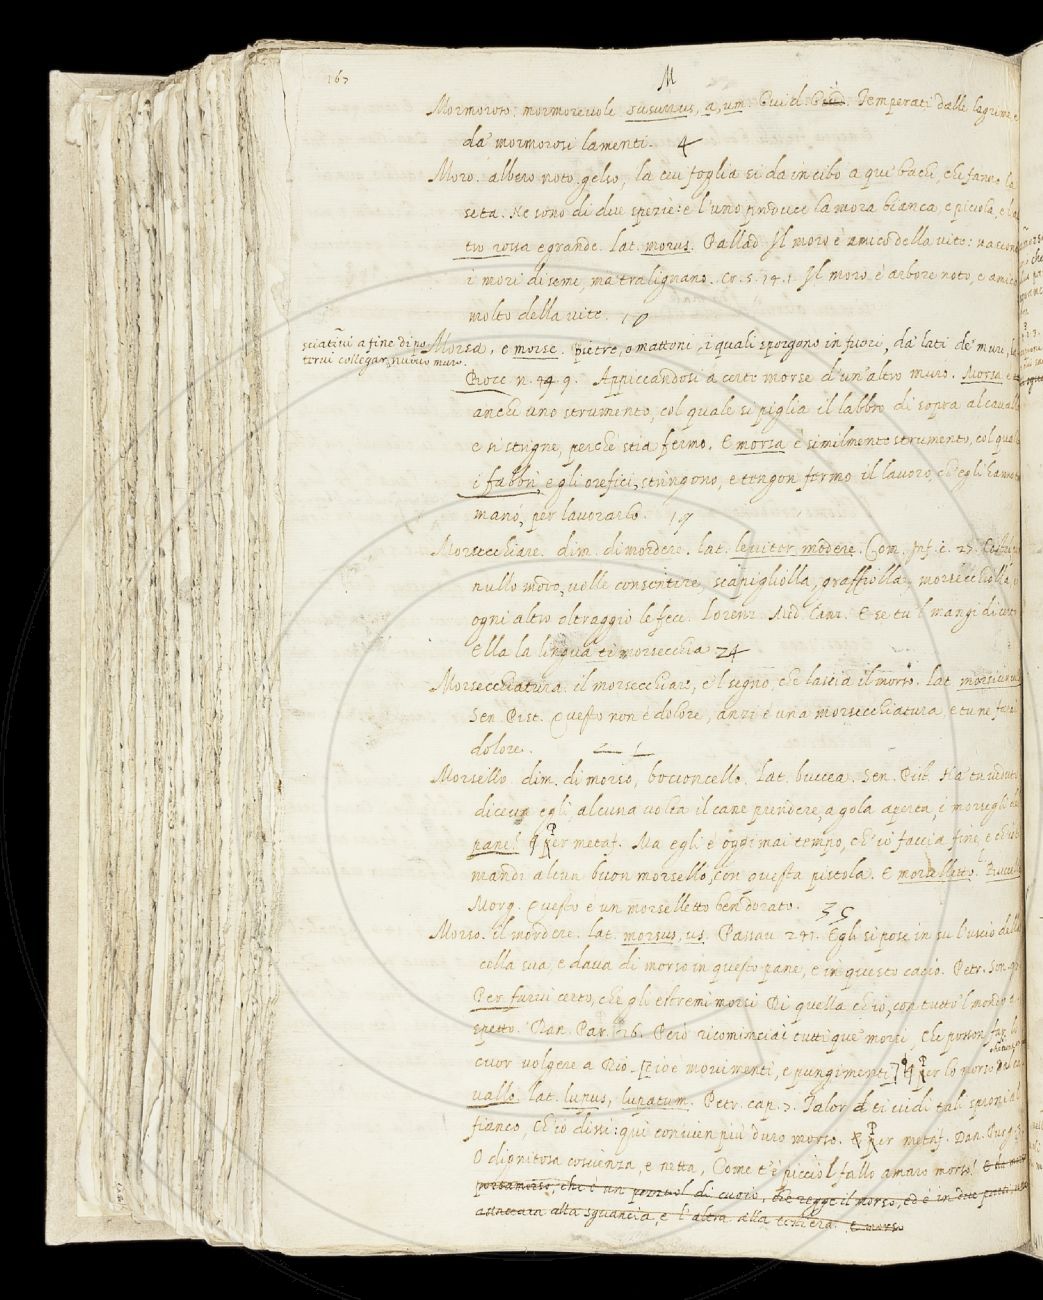 167
M
Mormoroso: mormorevole susurrus, a, um Guid. Giud. Temperati dalle lagrime, e
da' mormorosi lamenti. 4
Moro. albero noto gelso, la cui foglia si da in cibo a que' bachi, che fanno la
seta. Ne sono di due spezie: e l'uno produce la mora bianca, e picciola, e l'al
tro rossa e grande. lat. morus. Pallad. Il moro è amico della vite: nascono
i mori di seme, ma tralignano. Cr. 5. 14. 1. Il moro è arbore noto, e amico
molto della vite. 10
sciativi a fine di po
tervi collegar nuovo muro.
Morsa, e morse. pietre, o mattoni, i quali sporgono in fuori, da' lati de' muri,
Bocc. n. 79. 9. Appiccandosi a certe morse d'un'altro muro. Morsa e
anche uno strumento, col quale si piglia il labbro di sopra al cavallo
e si strigne, perchè stia fermo. E morsa è similmente strumento, col quale
i fabbri, e gli orefici, stringono, e tengon fermo il lavoro, ch'egli hanno
mano, per lavorarlo. 19
Morsecchiare. dim. di mordere. lat. leviter mordere. Com. Inf. c. 27.
nullo modo, volle consentire, scapigliolla, graffiolla, morsecchiolla,
ogni altro oltraggio le fece. Lorenz. Med. Canz. E se tu 'l mangi di
Ella la lingua ti morsecchia 24
Morsecchiatura. il morsecchiare, e 'l segno, che lascia il morso. lat.
Sen. Pist. Questo non è dolore, anzi è una morsecchiatura, e tu ne fai
dolore. 1
Morsello. dim. di morso, bocconcello. lat. buccea. Sen. Pist. Ha tu veduto
diceva egli, alcuna volta il cane prendere, a gola aperta, i morsegli del
pane! Per metaf. Ma egli è oggimai tempo, ch'io faccia fine, e ch'io
mandi alcun buon morsello, con questa pistola. E morselletto.
Morg. Questo è un morselletto ben dorato. 35
Morso. il mordere. lat. morsus, us. Passav. 241. Egli si pose in su l'uscio della
cella sua, e dava di morso in questo pane, e in questo cacio. Petr. Son.
Per farvi certo, che gli estremi morsi Di quella ch'io, con tutto 'l mondo a
spetto. Dan. Par. 26. Però ricominciai tutti que' morsi, Che posson far lo
cuor volgere a Dio [cioè movimenti, e pungimenti] Per lo morso del ca
vallo. lat. lupus, lupatum. Petr. cap. 3. Talor ti vidi tali sproni al
fianco, Ch'io dissi: qui convien più duro morso. Per metaf. Dan. Purg. 3.
O dignitosa coscienza, e netta, Come t'è picciol fallo amaro morso!
portamorso, che è un pezzuol di cuoio, che regge il morso, ed è in due parti, una
attaccata alla sguancia, e l'altra alla testiera. E morso